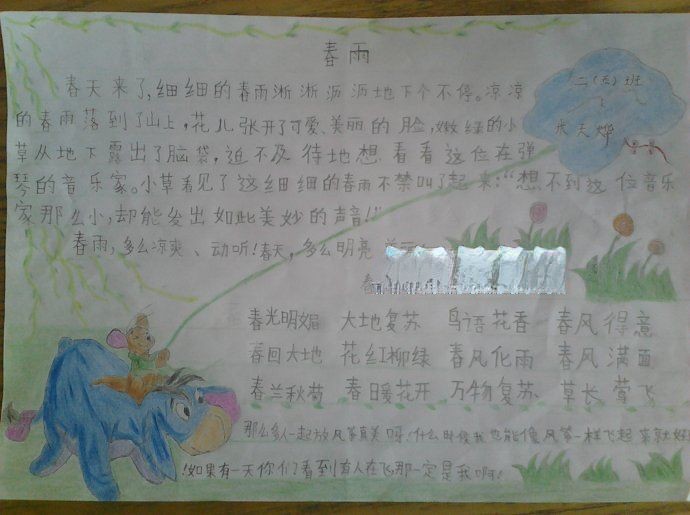 春雨
春天来了,细细的春雨淅淅沥沥地下个不停。凉凉
的春雨落到了山上,花儿张开了可爱、美丽的脸,嫩绿的小
草从地下露出了脑袋,迫不及待地想看看这位在弹
琴的音乐家。小草看见了这细细的春雨不禁叫了起来:“想不到这位音乐
家那么小,却能发出如此美妙的声音!”
春雨,多么凉爽、动听!春天,多么明亮
春
二(五)班
天烨
春光明媚 大地复苏 鸟语花香 春风得意
春回大地 花红柳绿 春风化雨 春风满面
春兰秋菊 春暖花开 万物复苏 草长莺飞
那么多人一起放风筝真美呀!什么时候我也能像风筝一样飞起来就好
!如果有一天你们看到有人在飞,那一定是我啊!